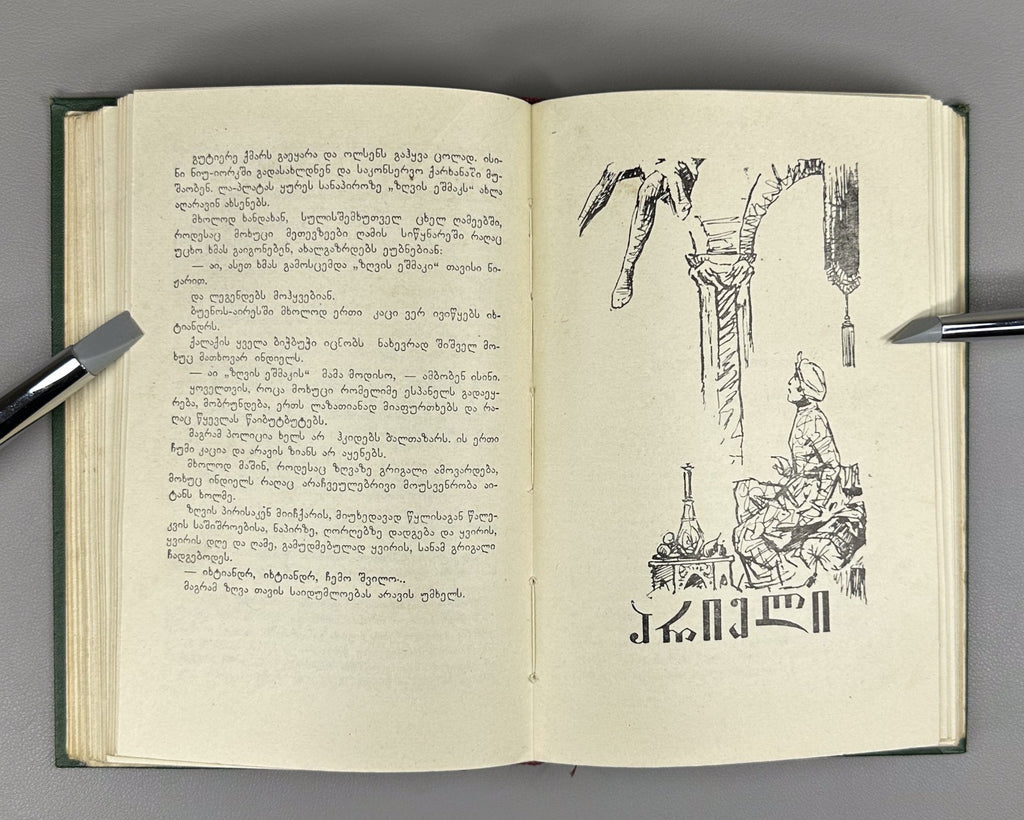 გუტიერე ქმარს გაეყარა და ოლსენს გაჰყვა ცოლად. ისი-
ნი ნიუ-იორკში გადასახლდნენ და საკონსერვო ქარხანაში მუ-
შაობენ. ლა-პლატას ყურეს სანაპიროზე „ზღვის ეშმაკს“ ახლა
აღარავინ ახსენებს.
მხოლოდ ხანდახან, სულისშემხუთველ ცხელ ღამეებში,
როდესაც მოხუცი მეთევზეები ღამის სიწყნარეში რაღაც
უცხო ხმას გაიგონებენ, ახალგაზრდებს ეუბნებიან:
— აი, ასეთ ხმას გამოსცემდა „ზღვის ეშმაკი“ თავისი ნი-
ჟარით.
და ლეგენდებს მოჰყვებიან.
ბუენოს-აირესში მხოლოდ ერთი კაცი ვერ ივიწყებს იხ-
ტიანდრს.
ქალაქის ყველა ბიჭბუჭი იცნობს ნახევრად შიშველ მო-
ხუც მათხოვარ ინდიელს.
— აი „ზღვის ეშმაკის“ მამა მოდისო, — ამბობენ ისინი.
ყოველთვის, როცა მოხუცი რომელიმე ესპანელს გადაეყ-
რება, მობრუნდება, ერთს ლაზათიანად მიაფურთხებს და რა-
ღაც წყევლას წაიბუტბუტებს.
მაგრამ პოლიცია ხელს არ ჰკიდებს ბალთაზარს. ის ერთი
ჩუმი კაცია და არავის ზიანს არ აყენებს.
მხოლოდ მაშინ, როდესაც ზღვაზე გრიგალი ამოვარდება,
მოხუც ინდიელს რაღაც არაჩვეულებრივი მოუსვენრობა აი-
ტანს ხოლმე.
ზღვის პირისაკენ მიიჩქარის, მიუხედავად წყლისაგან წალე-
კვის საშიშროებისა, ნაპირზე, ღორღებზე დადგება და ყვირის,
ყვირის დღე და ღამე, გამუდმებულად ყვირის, სანამ გრიგალი
ჩადგებოდეს.
— იხტიანდრ, იხტიანდრ, ჩემო შვილო...
მაგრამ ზღვა თავის საიდუმლოებას არავის უმხელს.
არიელი